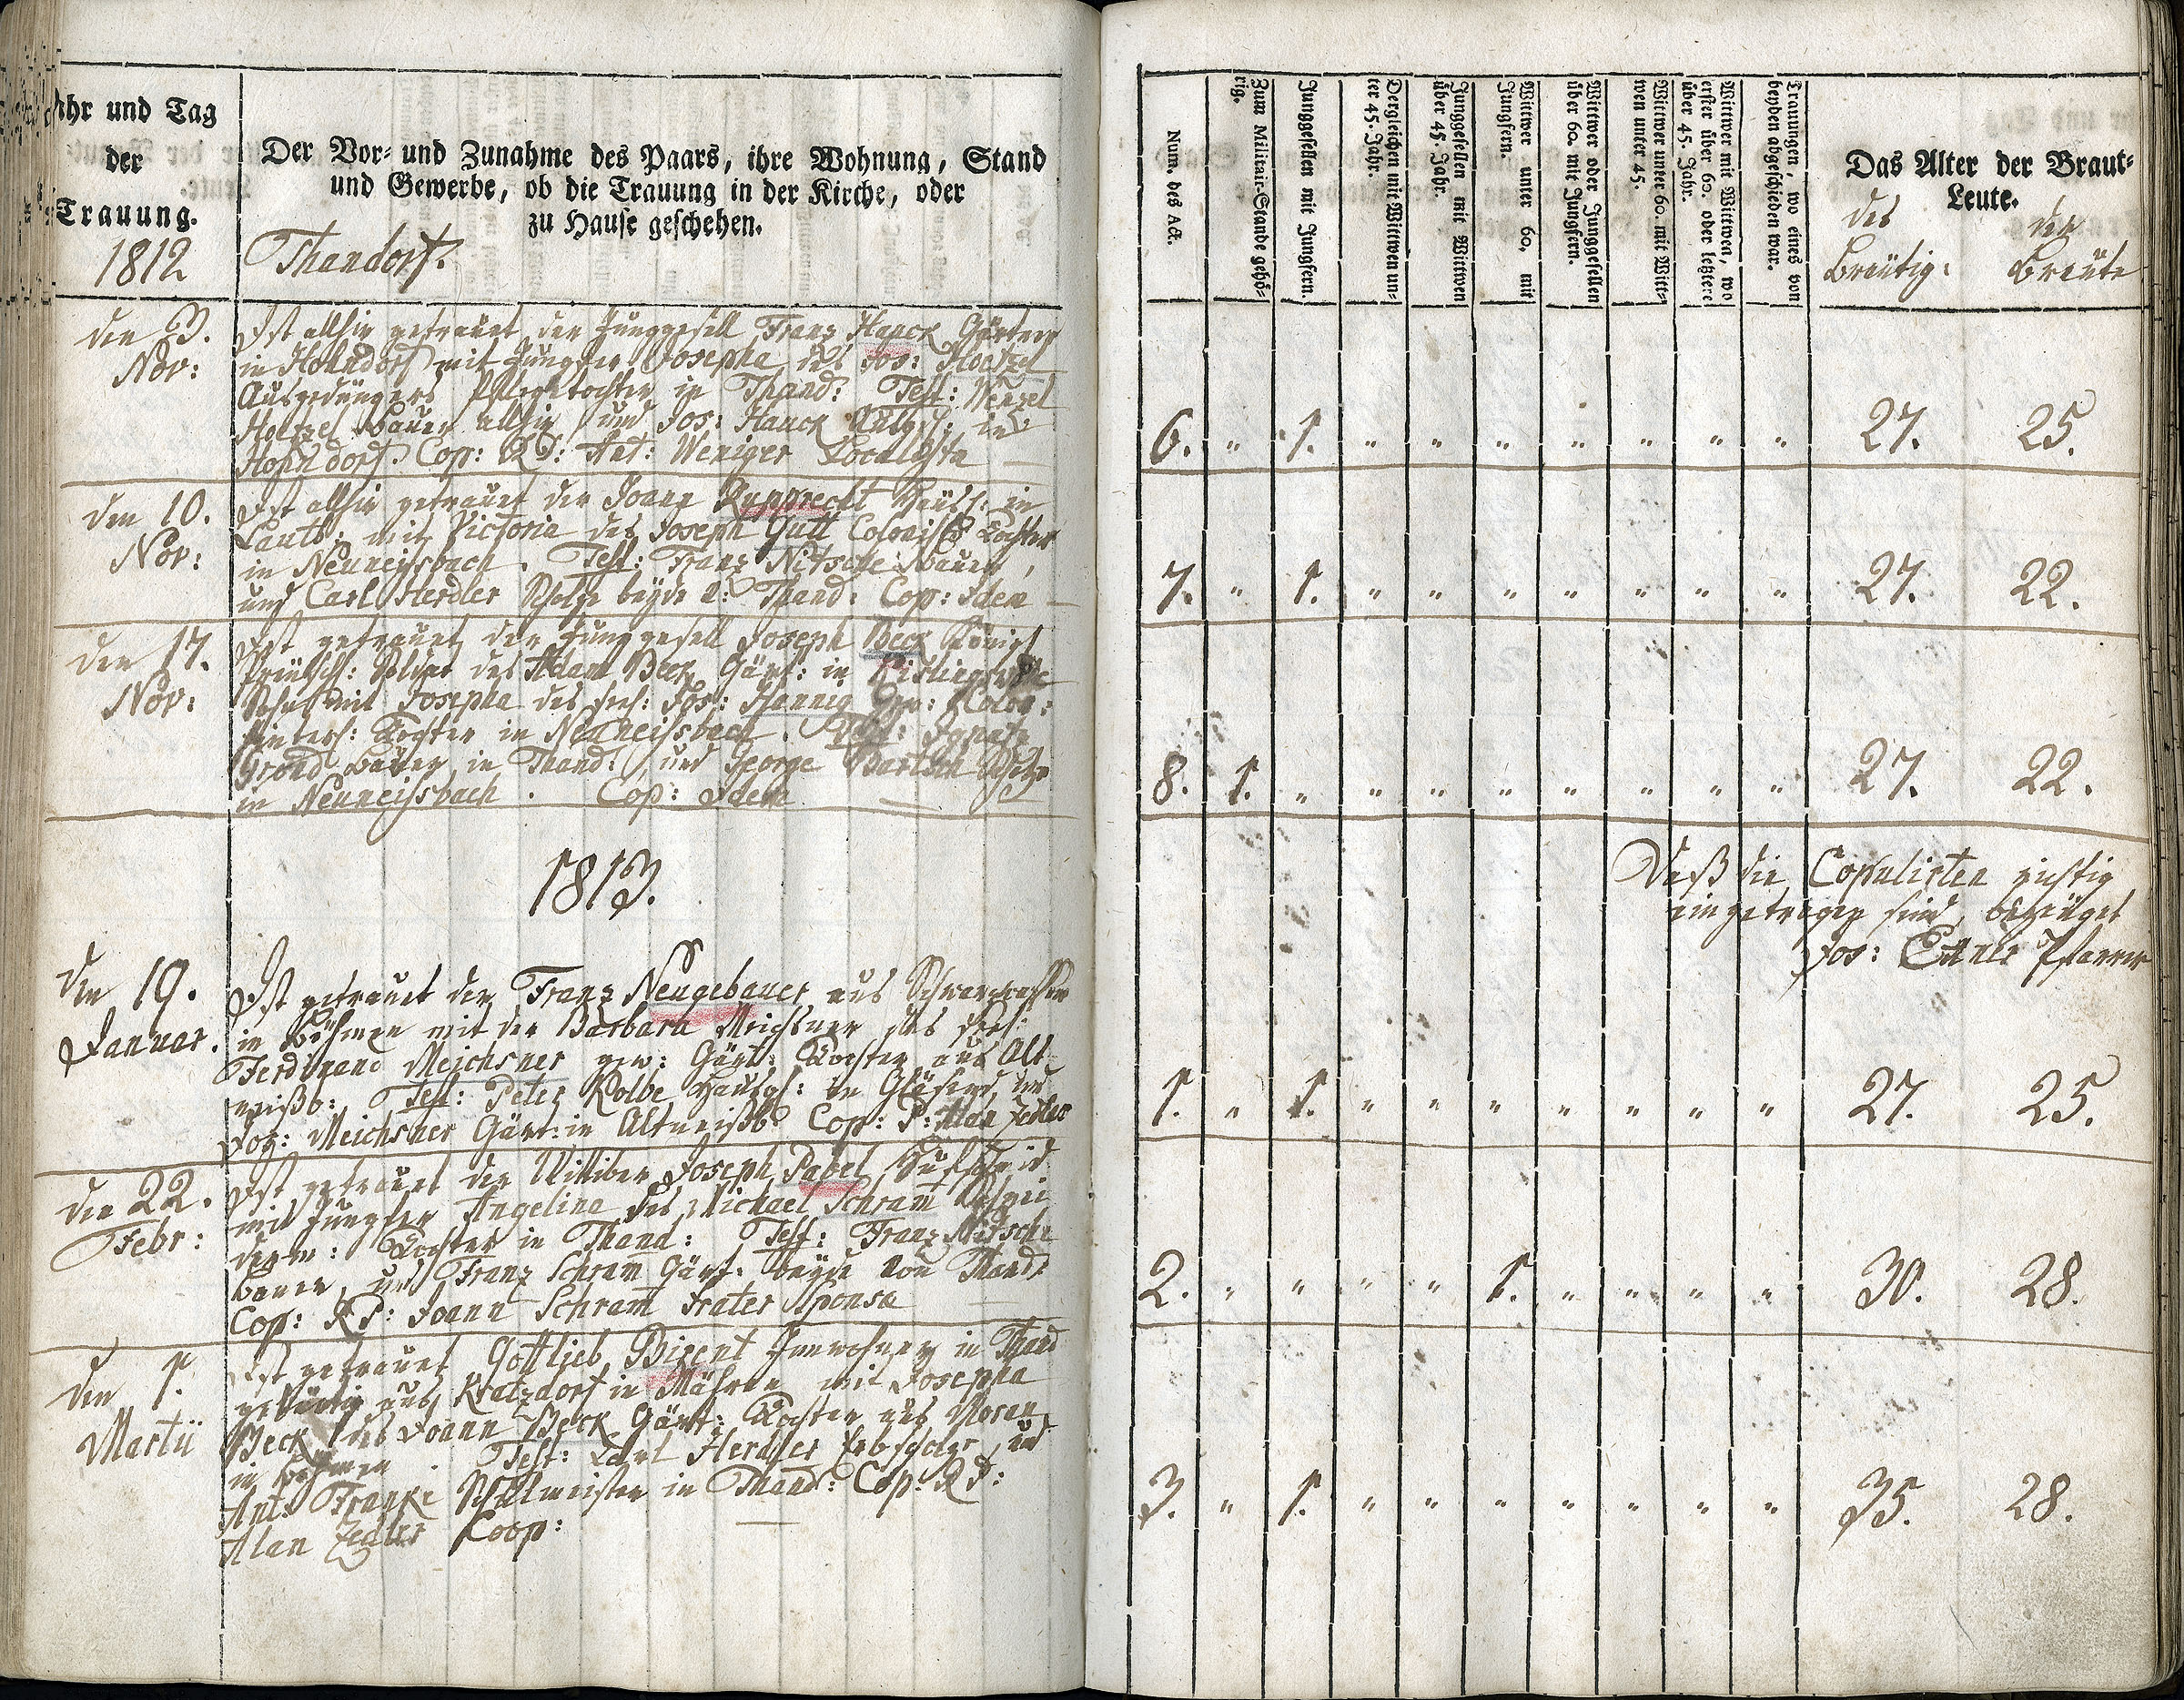 Jahr und Tag
der
Trauung.
1812
Der Vor- und Zunahme des Paars, ihre Wohnung, Stand
und Gewerbe, ob die Trauung in der Kirche, oder
zu Hause geschehen.
Thandorf.
den 3.
Nov:
Ist allhier getrauet der Junggesell Franz Hauck Gärtner
in Hohndorf mit Jungfer Josepha des Jos: Hoetzel
Ausgedüngers Pflegetochter in Thand: Test: Wenzel
Hoetzel Bauer allhier und Jos: Hauck in
Hohndorf. Cop: RD: Ant: Weniger Localista
den 10.
Nov:
Ist allhier getrauet der Joann Rupprecht Häusl: in
Lautb: mit Victoria des Joseph Gutt Colonist Tochter
in Neuneissbach. Test: Franz Nitsche Bauer,
und Carl Herdler Scholze beyde a: Thand: Cop: Idem
den 17.
Nov:
Ist getrauet der Junggesell Joseph Beck Königl
Preüsch: Soldat des Adam Beck Gärt: in
Sohn mit Josepha des seel: Jos: Hannig Gew: Colon:
hinterl: Tochter in Neuneissbach. Test: Ignatz
Grond Bauer in Thand: und George Bartsch Scholze
in Neuneissbach. Cop: Idem
1813.
den 19.
Januar.
Ist getrauet der Franz Neugebauer aus Schwarzwasser
in Böhmen mit der Barbara Meichsner des seel:
Ferdinand Meichsner gew: Gärt: Tochter aus Alt-
neißb: Test: Peter Kolbe Hausgl: in Gläsend und
Jos: Meichsner Gärt: in Altneißb Cop: P: Alan Zedler
den 22.
Febr:
Ist getrauet der Wittiber Joseph Pabel Hufschmid
mit Jungfer Angelina des Michael Schram
Tochter in Thand: Test: Franz Nitsche
Bauer, und Franz Schram Gärt: beyde von Thand:
Cop: RP: Joann Schram frater Sponsa
den 1.
Martii
Ist getrauet Gottlieb Bizent Innwohner in Thand
gebürtig aus Kratzdorf in Mähren mit Josepha
Beck des Joann Beck Gärt: Tochter aus
in Böhmen. Test: Carl Herdler Erbscholz und
Ant: Franke Schulmeister in Thand: Cop: RD:
Alan Zedler Koop:
Num. des Act.
Zum Militair-Stande gehö-
rig.
Junggesellen mit Jungfern.
Dergleichen mit Wittwen un-
ter 45. Jahr.
Junggesellen mit Wittwen
über 45. Jahr.
Wittwer unter 60, mit
Jungfern.
Wittwer oder Junggesellen
über 60. mit Jungfern.
Wittwer unter 60. mit Witt-
wen unter 45.
Wittwer mit Wittwen, wo
erster über 60. oder letztere
über 45. Jahr.
Trauungen, wo eines von
beyden abgeschieden war.
Das Alter der Braut-
Leute.
des
Bräutig:
der
Bräute
6. " 1. " " " " " " " 27. 25.
7. " 1. " " " " " " " 27. 22.
8. 1. " " " " " " " " 27. 22.
Daß die Copulirten richtig
eingetragen sind, bezeüget
Jos: Pfarrer
1. " 1. " " " " " " " 27. 25.
2. " " " " 1. " " " " 30. 28.
3. " 1. " " " " " " " 35. 28.